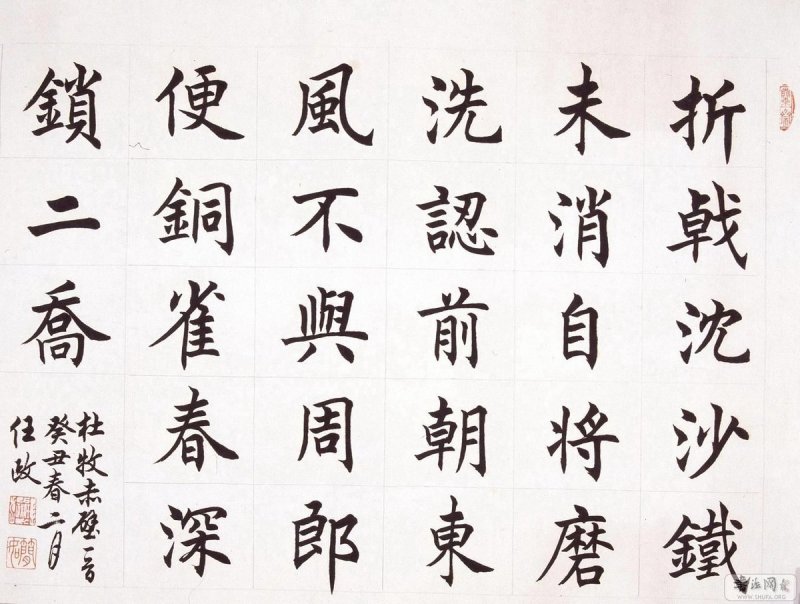 折戟沈沙鐵
未消自将磨
洗認前朝東
風不與周郎
便銅雀春深
鎖二喬
杜牧赤壁一首
癸丑春二月
任政
WWW.SHUFA.ORG